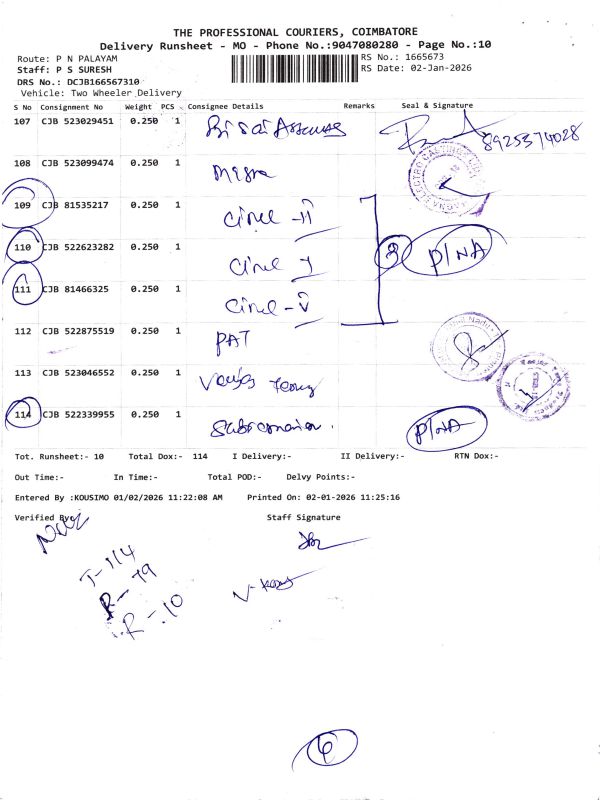 THE PROFESSIONAL COURIERS, COIMBATORE
Delivery Runsheet - MO - Phone No.:9047080280 - Page No.:10
Route: P N PALAYAM
RS No.: 1665673
Staff: P S SURESH
RS Date: 02-Jan-2026
DRS No.: DCJB166567310
Vehicle: Two Wheeler Delivery
S No Consignment No Weight PCS Consignee Details Remarks Seal & Signature
107 CJB 523029451 0.250 1 Sri Sai
8925374028
108 CJB 523099474 0.250 1
109 CJB 81535217 0.250 1 Cinel - II
110 CJB 522623282 0.250 1 Cinel I 3 P/NA
111 CJB 81466325 0.250 1 Cinel - V
112 CJB 522875519 0.250 1 PAT
113 CJB 523046552 0.250 1
114 CJB 522339955 0.250 1 P/NA
Tot. Runsheet:- 10 Total Dox:- 114 I Delivery:- II Delivery:- RTN Dox:-
Out Time:- In Time:- Total POD:- Delvy Points:-
Entered By :KOUSIMO 01/02/2026 11:22:08 AM Printed On: 02-01-2026 11:25:16
Verified By: Staff Signature
T-114
R-79
R-10
6